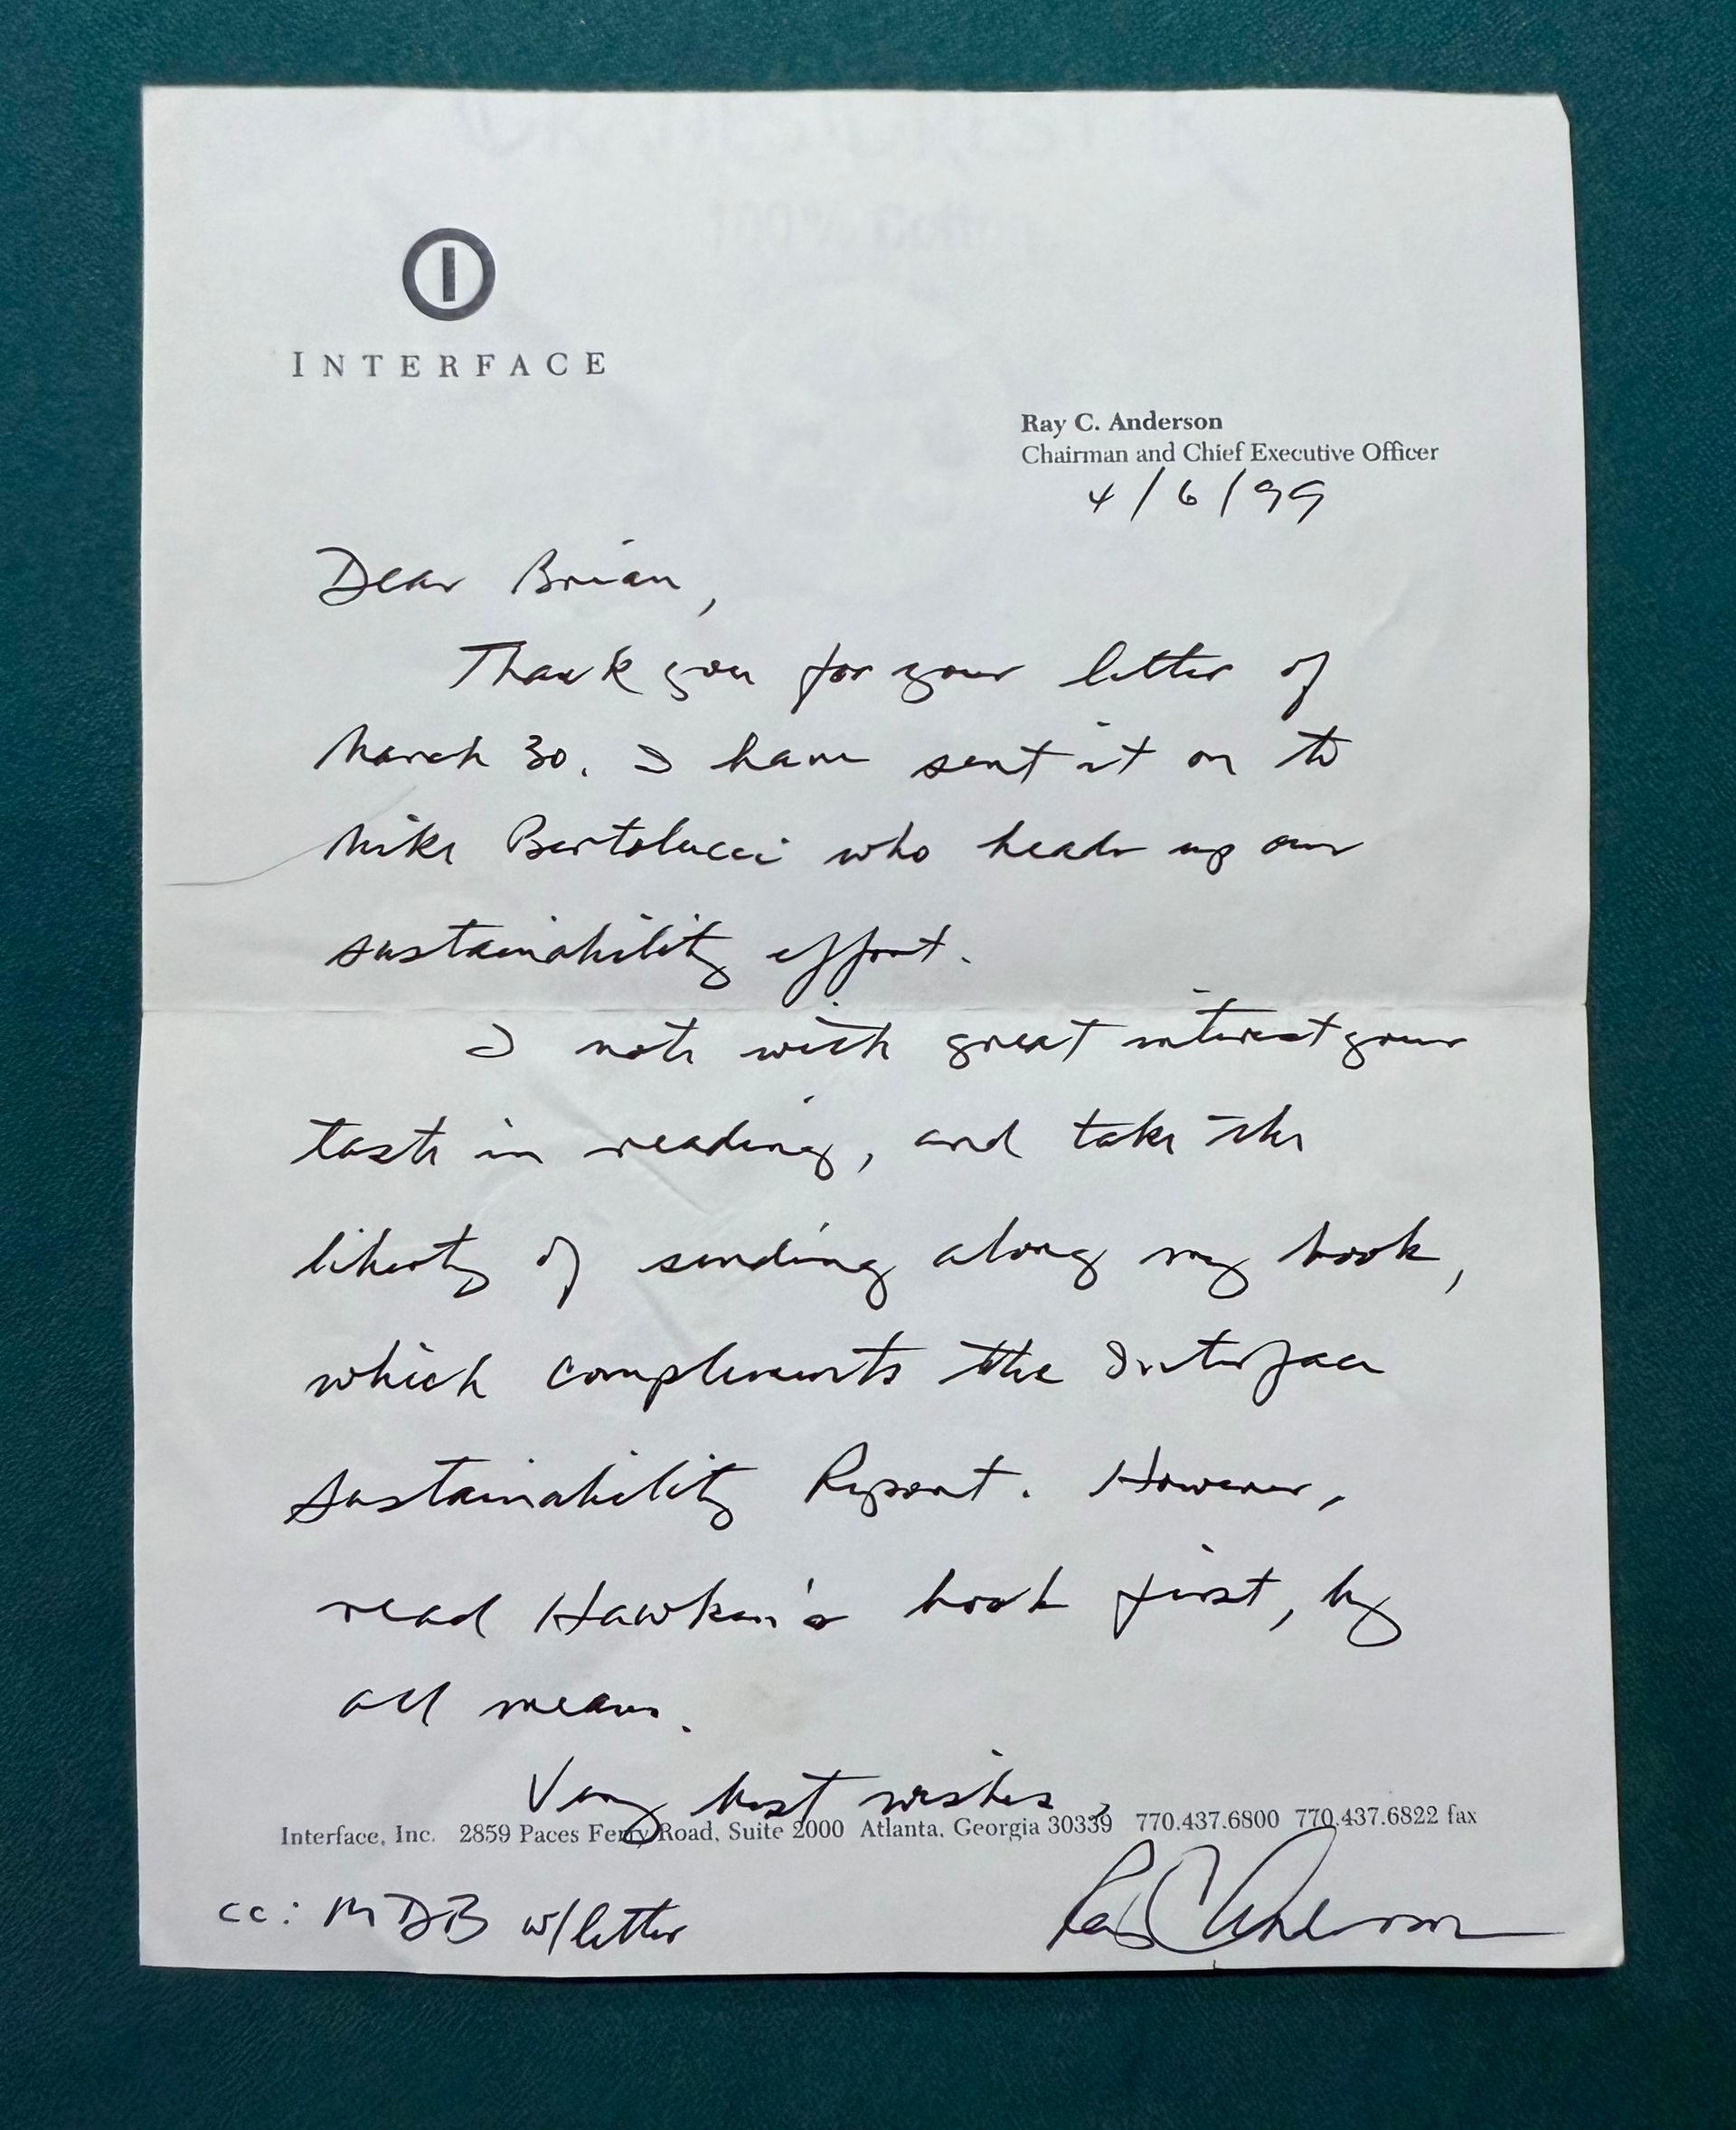 INTERFACE
Ray C. Anderson
Chairman and Chief Executive Officer
4/6/99
Dear Brian,
Thank you for your letter of
March 30. I have sent it on to
Mike Bertolucci who heads up our
sustainability effort.
I note with great interest your
taste in reading, and take the
liberty of sending along my book,
which complements the Interface
Sustainability Report. However,
read Hawken's book first, by
all means.
Very best wishes,
Interface, Inc. 2859 Paces Ferry Road, Suite 2000 Atlanta, Georgia 30339 770.437.6800 770.437.6822 fax
Ray C Anderson
cc: MDB w/letter